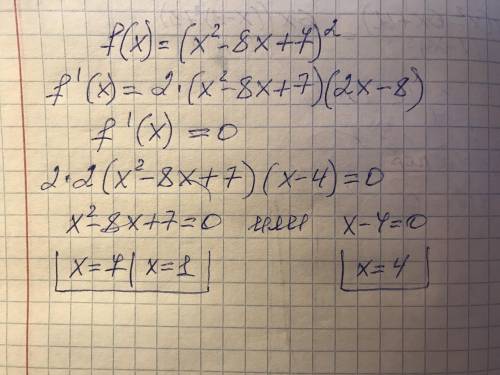 f(x) = (x² - 8x + 7)²
f'(x) = 2·(x² - 8x + 7)(2x - 8)
f'(x) = 0
2·2(x² - 8x + 7)(x - 4) = 0
x² - 8x + 7 = 0 или x - 4 = 0
x = 7 | x = 1 x = 4